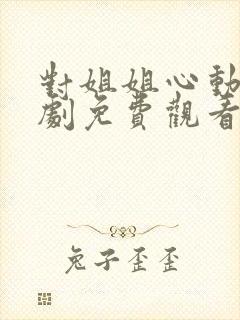 對姐姐心動
劇免費觀看
兔子歪歪